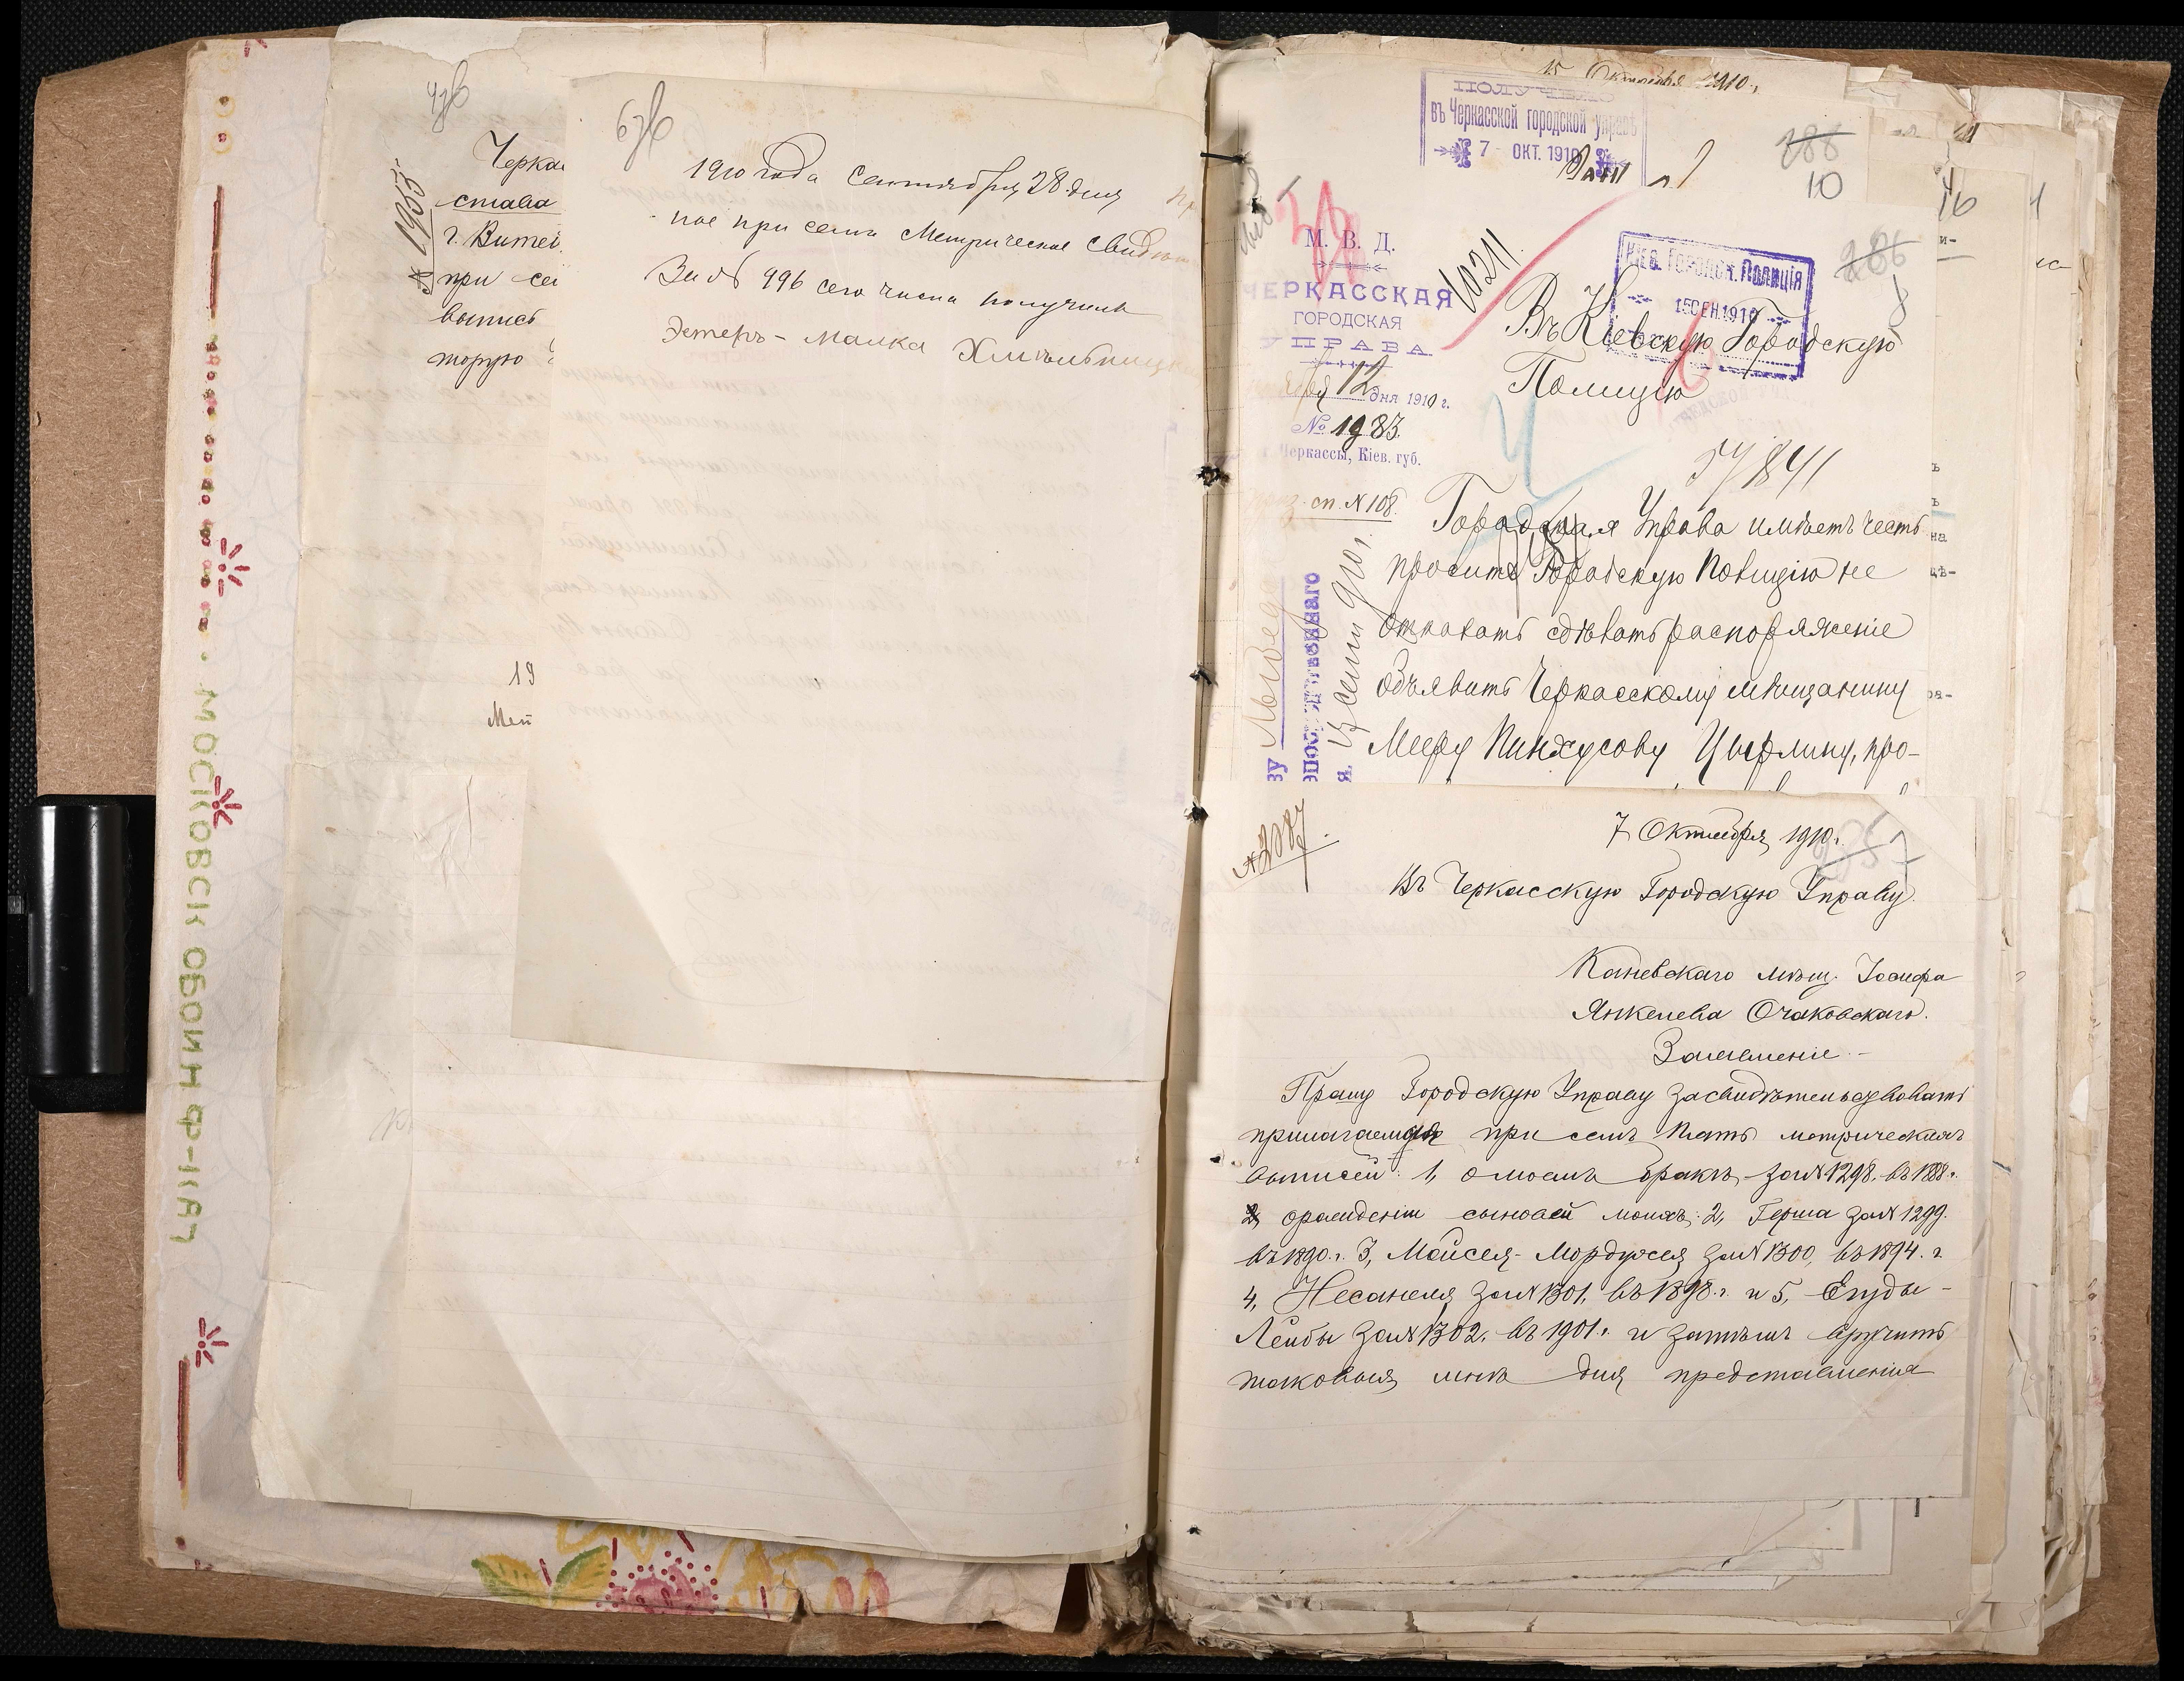 4об
Черка
става
г. Витеб
при се
выпис
торую
№ 1955
19
Мѣ
6об
1910 года Сентября 28 дня
ное при семъ Метрическое Свидѣт
За № 996 сего числа получила
Эстеръ-Малка Хмѣльницк
МОСКОВСК ОБОЙН Ф-КА
15 Октября 1910 г.
ПОЛУЧЕНО
въ Черкасской городской управѣ
7 ОКТ. 1910
288
10
16
М. В. Д.
ЧЕРКАССКАЯ
ГОРОДСКАЯ
УПРАВА
12 дня 1910 г.
№ 1983.
г. Черкассы, Кіев. губ.
сп. № 108.
10211
КІЕВ. ГОРОДСК. ПОЛИЦІЯ
15 СЕН. 1910
286
8
Въ Кіевскую Городскую
Полицію
57841
Городская Управа имѣетъ честь
просить Городскую Полицію не
отказать сдѣлать распоряженіе
объявить Черкасскому мѣщанину
Мееру Пинхусову Цырлину, про-
№ 2087
7 Октября 1910 г.
7
Въ Черкасскую Городскую Управу.
Каневскаго мѣщ. Іосифа
Янкелева Очаковскаго.
Заявленіе.-
Прошу Городскую Управу засвидѣтельствовать
прилагаемыя при семъ пять метрическихъ
выписей: 1, о моемъ бракѣ за № 1298. въ 1888 г.
о рожденіи сыновей моихъ: 2, Герша за № 1299.
въ 1890. г. 3, Мойсея-Мордухея за № 1300, въ 1894. г.
4, Несанеля за № 1301, въ 1898. г. и 5, Егуды-
Лейбы за № 1302. въ 1901. г. и затѣмъ вручить
таковыя мнѣ для представленія